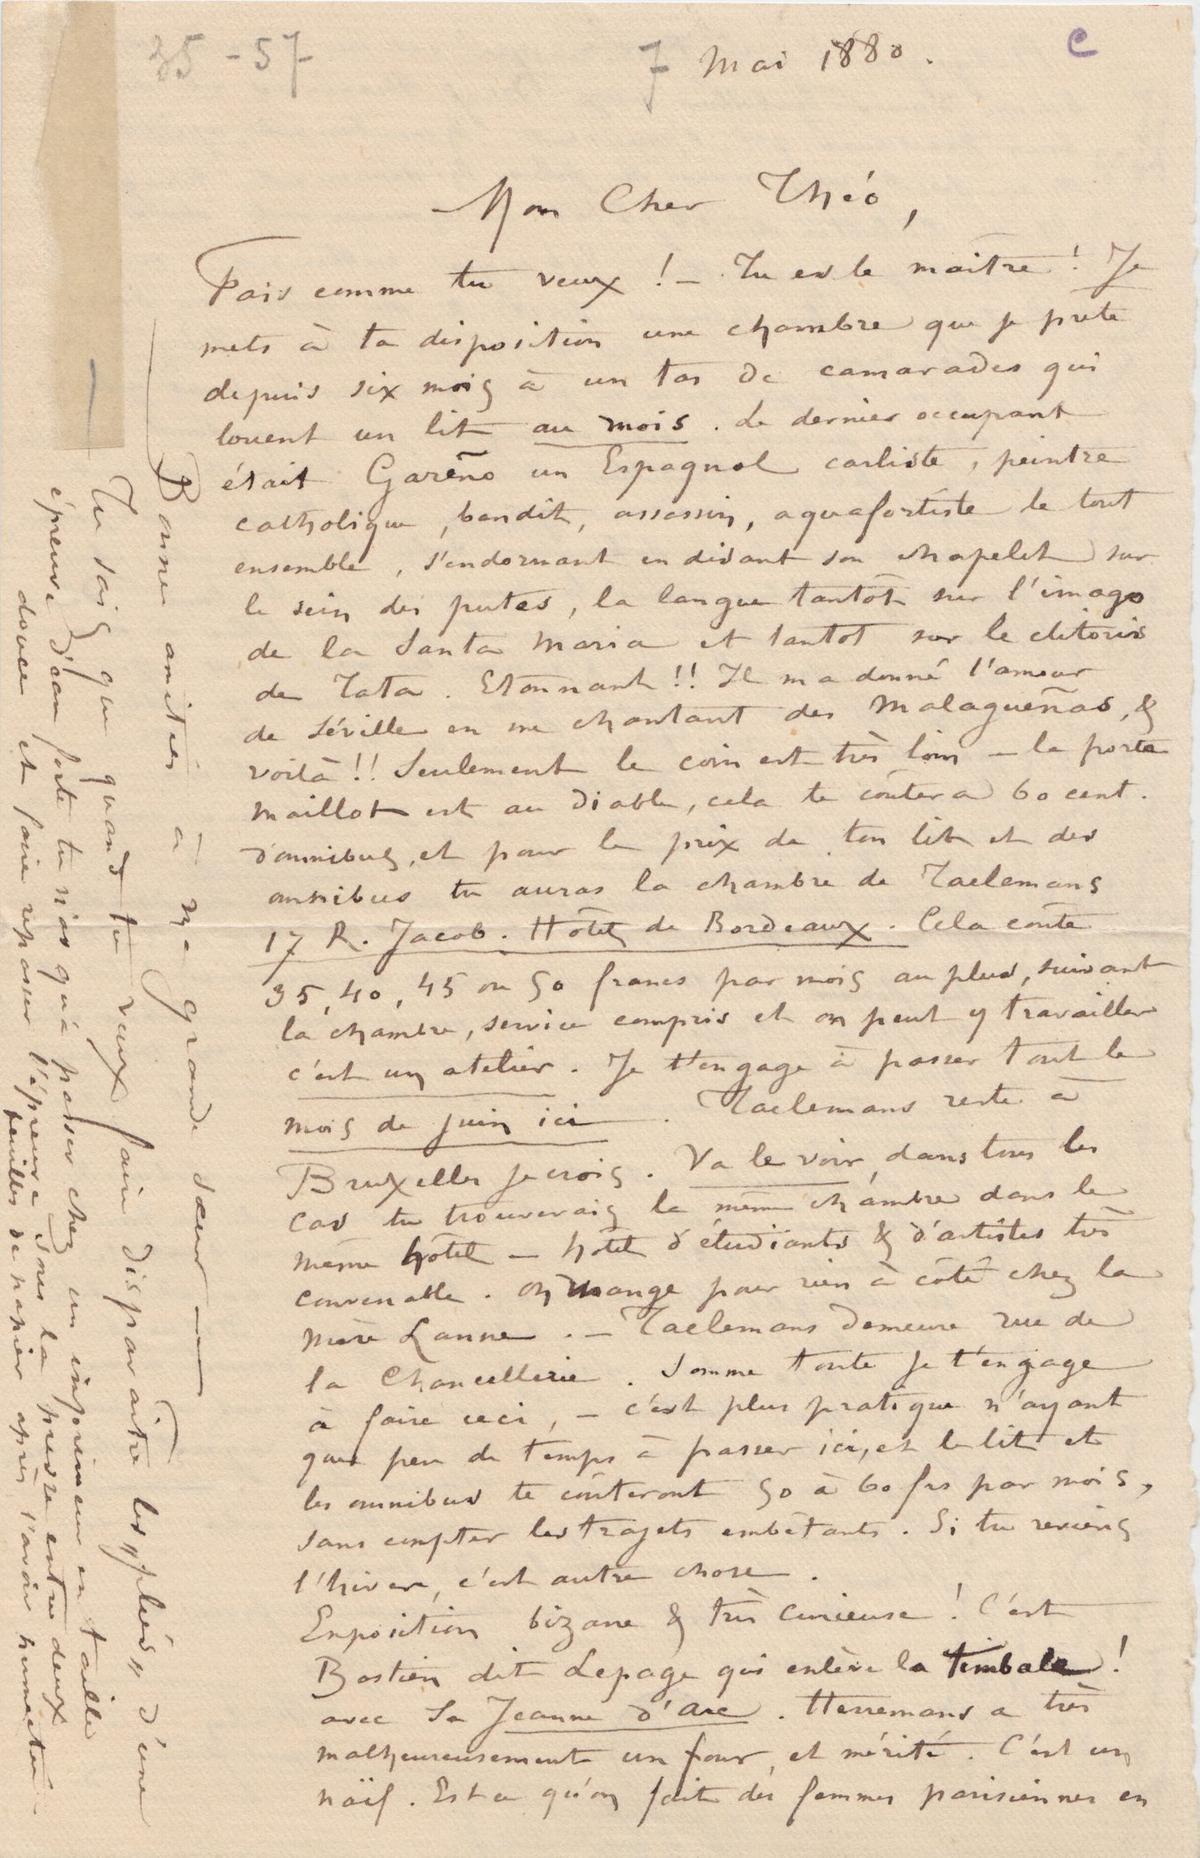 35 - 57
7 Mai 1880.
C
Mon Cher Théo,
Fais comme tu veux ! — Tu es le maître ! Je
mets à ta disposition une chambre que je prête
depuis six mois à un tas de camarades qui
louent un lit au mois. Le dernier occupant
était Gareño un Espagnol carliste, peintre
catholique, bandit, assassin, aquafortiste le tout
ensemble, s'endormant en disant son chapelet sur
le sein des putes, la langue tantôt sur l'image
de la Santa Maria et tantot sur le clitoris
de Tata. Etonnant !! Il m'a donné l'amour
de Séville en me chantant des Malagueñas, &
voilà !! Seulement le coin est très loin — la porte
Maillot est au diable, cela te coûtera 60 cent.
d'omnibus, et pour le prix de ton lit et des
omnibus tu auras la chambre de Taelemans
17 R. Jacob. Hôtel de Bordeaux. Cela coûte
35, 40, 45 ou 50 francs par mois au plus, suivant
la chambre, service compris et on peut y travailler
c'est un atelier. Je t'engage à passer tout le
mois de juin ici. Taelemans reste à
Bruxelles je crois. Va le voir, dans tous les
cas tu trouverais la même chambre dans le
même hôtel — hôtel d'étudiants & d'artistes très
convenable. On mange pour rien à côté chez la
mère Lanne. — Taelemans demeure rue de
la Chancellerie. Somme toute je t'engage
à faire ceci, — c'est plus pratique n'ayant
que peu de temps à passer ici, et le lit et
les omnibus te coûteront 50 à 60 frs par mois,
sans compter les trajets embêtants. Si tu reviens
l'hiver, c'est autre chose.
Exposition bizarre & très curieuse ! C'est
Bastien dit Lepage qui enlève la timbale !
avec sa Jeanne d'Arc. Herremans a très
malheureusement un four, et mérité. C'est un
naïf. Est ce qu'on fait des femmes parisiennes en
Bonnes amitiés à ma grande sœur —
Tu sais que quand tu veux faire disparaître les „pliés„ d'une
épreuve d'eau forte tu n'as qu'à passer chez un imprimeur en taille
douce et faire repasser l'épreuve sous la presse entre deux
feuilles de papier après l'avoir humectée.